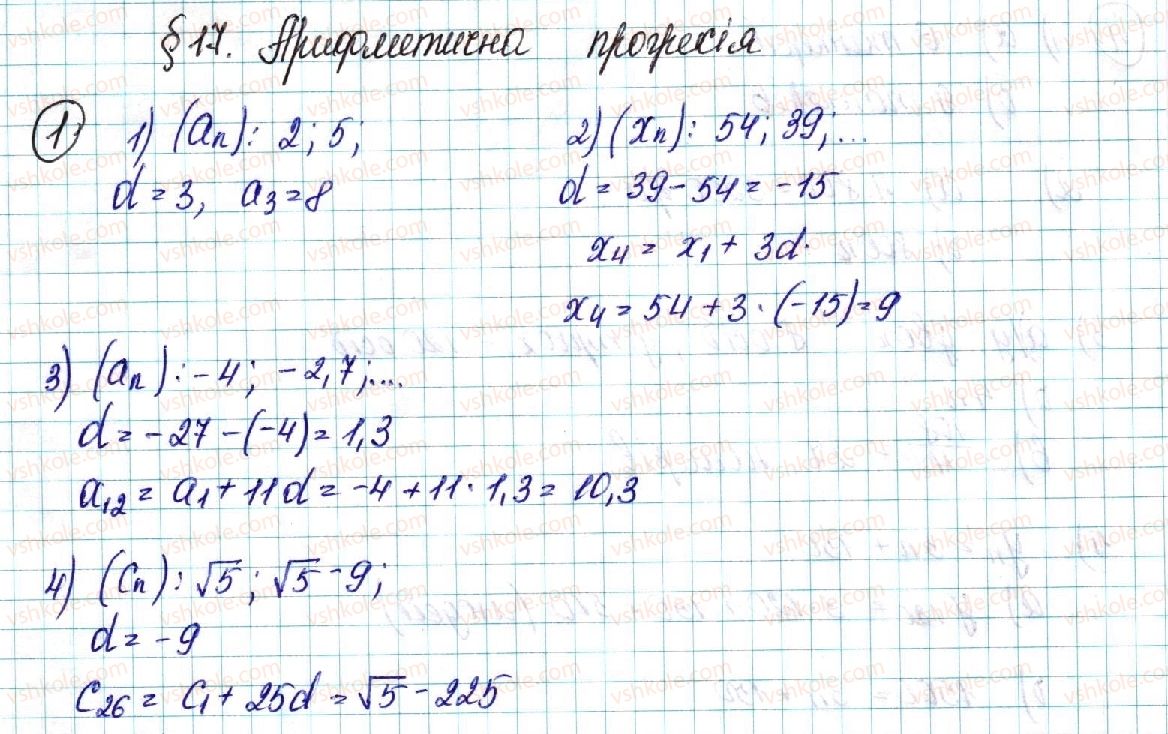 § 17. Арифметична прогресія
1 1) (aₙ): 2; 5;
d = 3, a₃ = 8
2) (xₙ): 54; 39; ...
d = 39 - 54 = -15
x₄ = x₁ + 3d.
x₄ = 54 + 3 · (-15) = 9
3) (aₙ): -4; -2,7; ...
d = -27 - (-4) = 1,3
a₁₂ = a₁ + 11d = -4 + 11 · 1,3 = 10,3
4) (cₙ): √5; √5 - 9;
d = -9
c₂₆ = c₁ + 25d = √5 - 225